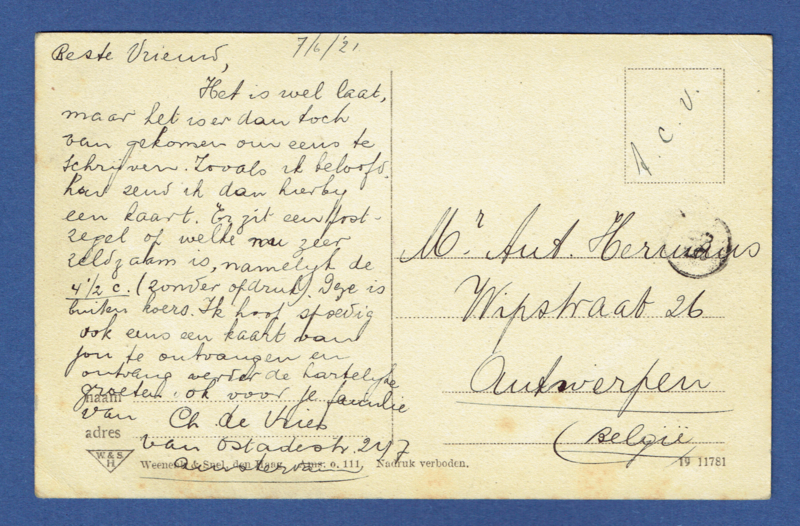 7/6/'21
Beste Vriend,
Het is wel laat,
maar het is er dan toch
van gekomen om eens te
schrijven. Zooals ik beloofd
heb zend ik dan hierby
een kaart. Er zit een post-
zegel op welke nu zeer
zeldzaam is, namelyk de
4 1/2 c. (zonder opdruk). Deze is
buiten koers. Ik hoop spoedig
ook eens een kaart van
jou te ontvangen en
ontvang verder de hartelyke
groeten, ook voor je familie
van Ch. de Vries
van Ostadestr. 247
Amsterdam
naam
adres
W.&S.
H
Weenenk & Snel, den Haag. Ams. o. 111. Nadruk verboden.
19 11781
A. C. V.
Mr. Ant. Hermans
Wipstraat 26
Antwerpen
(België